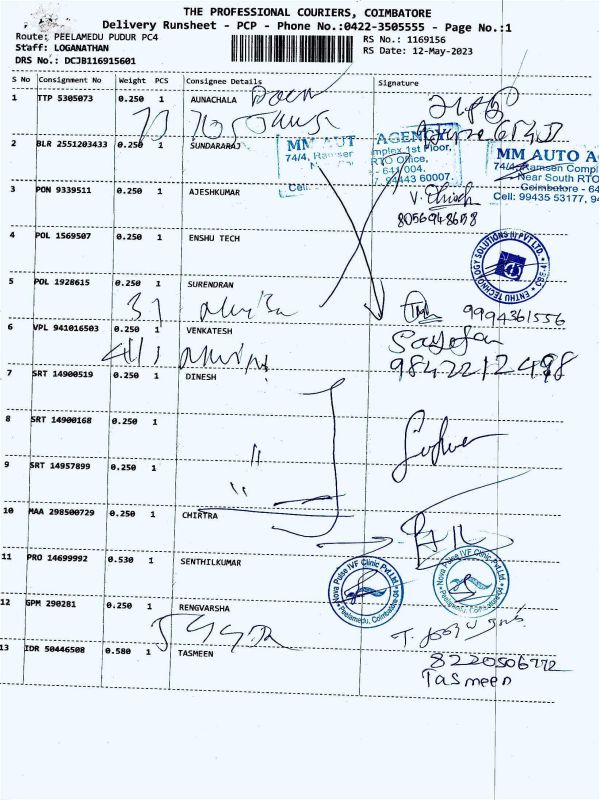 THE PROFESSIONAL COURIERS, COIMBATORE
Delivery Runsheet - PCP - Phone No.:0422-3505555 - Page No.:1
Route: PEELAMEDU PUDUR PC4
RS No.: 1169156
Staff: LOGANATHAN
RS Date: 12-May-2023
DRS No.: DCJB116915601
S No Consignment No Weight PCS Consignee Details Signature
1 TTP 5305073 0.250 1 AUNACHALA
2 BLR 2551203433 0.250 1 SUNDARARAJ
MM AUT AGENCY
74/4, mplex 1st Floor,
RTO Office,
- 641 004.
94443 60007.
Cell:
MM AUTO A
74/4, Ramsen Compl
Near South RTO
Coimbatore - 64
Cell: 99435 53177, 94
3 PON 9339511 0.250 1 AJESHKUMAR
8056948658
4 POL 1569507 0.250 1 ENSHU TECH
ENTHU TECHNOLOGY SOLUTIONS (I) PVT LTD.
5 POL 1928615 0.250 1 SURENDRAN
31
9994361556
6 VPL 941016503 0.250 1 VENKATESH
9842212498
7 SRT 14900519 0.250 1 DINESH
8 SRT 14900168 0.250 1
9 SRT 14957899 0.250 1
10 MAA 298500729 0.250 1 CHIRTRA
11 PRO 14699992 0.530 1 SENTHILKUMAR
Nova Pulse IVF Clinic Pvt.Ltd
Peelamedu, Coimbatore-04
Nova Pulse IVF Clinic Pvt.Ltd
Peelamedu, Coimbatore-04
12 GPM 290281 0.250 1 RENGVARSHA
13 IDR 50446508 0.580 1 TASMEEN
8220506772
Tasmeen